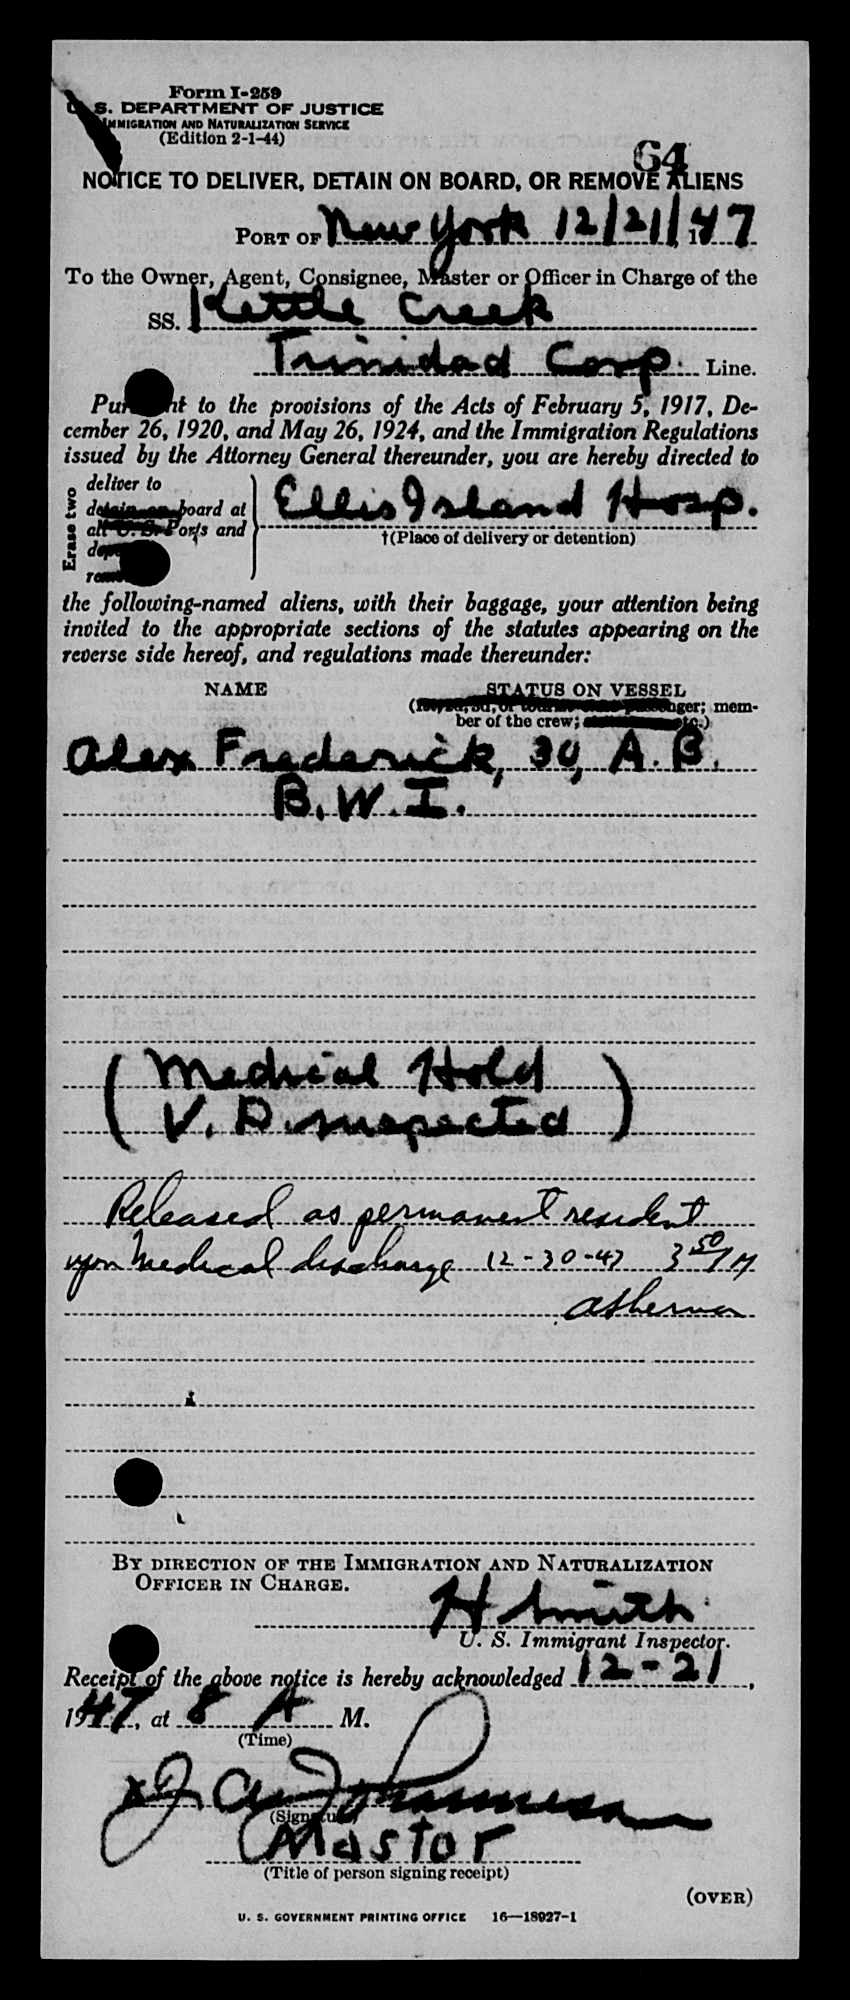 Form I-259
U. S. DEPARTMENT OF JUSTICE
IMMIGRATION AND NATURALIZATION SERVICE
(Edition 2-1-44)
64
NOTICE TO DELIVER, DETAIN ON BOARD, OR REMOVE ALIENS
PORT OF New York 12/21/, 1947
To the Owner, Agent, Consignee, Master or Officer in Charge of the
SS. Kettle Creek
Trinidad Corp. Line.
Pursuant to the provisions of the Acts of February 5, 1917, De-
cember 26, 1920, and May 26, 1924, and the Immigration Regulations
issued by the Attorney General thereunder, you are hereby directed to
Erase two
deliver to
detain on board at
all U. S. Ports and
Ellis Island Hosp.
†(Place of delivery or detention)
the following-named aliens, with their baggage, your attention being
invited to the appropriate sections of the statutes appearing on the
reverse side hereof, and regulations made thereunder:
NAME STATUS ON VESSEL
passenger; mem-
ber of the crew; etc.)
Alex Frederick, 30, A. B.
B. W. I.
( Medical Hold
V. D. suspected )
Released as permanent resident
upon Medical discharge 12-30-47 3 50 PM
U. S. GOVERNMENT PRINTING OFFICE 16—18927-1
BY DIRECTION OF THE IMMIGRATION AND NATURALIZATION
OFFICER IN CHARGE.
H Smith
U. S. Immigrant Inspector.
Receipt of the above notice is hereby acknowledged 12-21,
1947, at 8 A M.
(Time)
(Signature)
Master
(Title of person signing receipt)
(OVER)